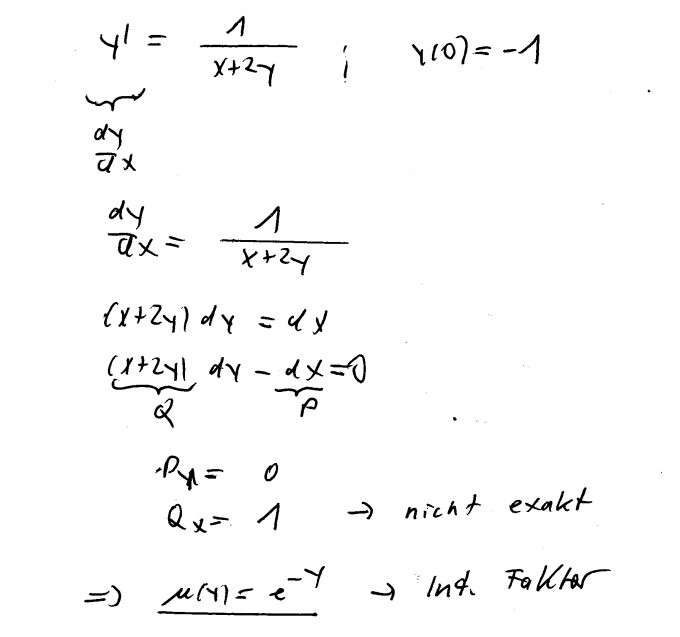 y' = 1/(x+2y) ; y(0) = -1
dy/dx
dy/dx = 1/(x+2y)
(x+2y) dy = dx
(x+2y) dy - dx = 0
Q P
Py = 0
Qx = 1 → nicht exakt
=> μ(y) = e^-y → Int. Faktor